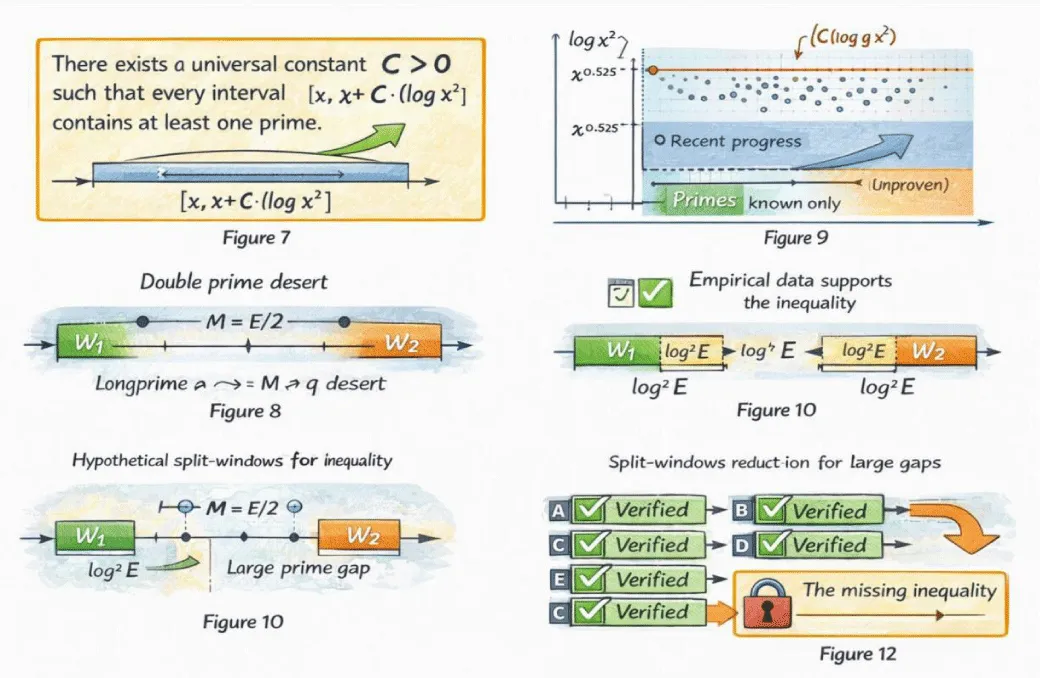 There exists a universal constant C > 0
such that every interval [x, x+ C·(log x²]
contains at least one prime.
[x, x+C·(log x²]
Figure 7
log x²
(C(log g x²)
x^0.525
x^0.525
Recent progress
(Unproven)
Primes known only
Figure 9
Double prime desert
M = E/2
W₁
W₂
Longprime = M q desert
Figure 8
Empirical data supports
the inequality
W₁ log² E log⁴ E log² E W₂
log² E log² E
Figure 10
Hypothetical split-windows for inequality
M = E/2
W₁
W₂
log² E
Large prime gap
Figure 10
Split-windows reduct-ion for large gaps
A Verified B Verified
C Verified D Verified
E Verified
C Verified
The missing inequality
Figure 12